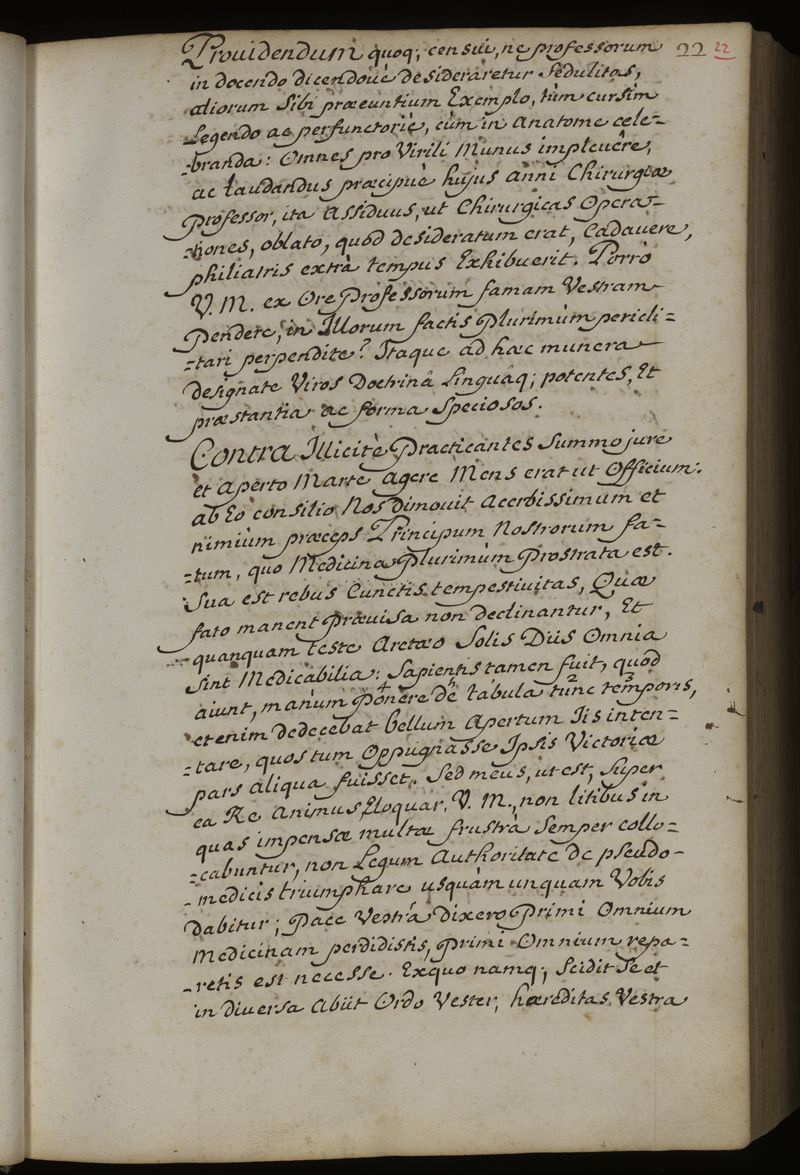 22 22
Prouidendum quoq; censui, ne professorum
in docendo dicendoue desideraretur sedulitas,
aliorum sibi præeuntium Exemplo, tùm cursìm
Legendo ac perfunctoriè, cùm in Anatome cele=
=branda: Omnes pro Virili Munus impleuêre,
ac Laudandus præcipuè hujus Anni Chirurgiæ
professor, ita Assiduus, ut Chirurgicas Opera=
=tiones, oblato, quod desideratum erat, Cadauere,
philiatris extrà tempus Exhibuerit. Porrò
V. M. ex Ore Professorum famam Vestram
Pendere, in Illorum factis Plurimùm pericli=
=tari perpendite? Itaque ad hæc munera
designate Viros Doctrinâ Linguâq; potentes, Et
præstantia ac forma Speciosos.
Contra Illicitè Practicantes Summo jure
et Aperto Marte Agere Mens erat ut Officium.
ab Eo consilio Nos Dimouit Acerbissimum et
nimiùm præceps Principum Nostrorum fa=
=tum, quo Medicina Plurimùm Prostrata est.
Sua est rebus Cunctis tempestiuitas, Quæ
fato manent Præuisa non Declinantur, Et
quanquam teste Aretæo Solis Diis Omnia
sint Medicabilia; Sapientis tamen fuit, quod
aiunt, manum Ponere de tabula tunc temporis,
etenim dedecebat bellum Apertum Iis inten=
=tare, quos tum Oppugnasse Ipsis Victoriæ
pars aliqua fuisset. Sed meus, ut est, super
ea Re Animus Eloquar. V. M., non litibus in
quas impensæ multæ frustrà Semper collo=
=cabuntur, non Legum Authoritate de pseudo-
-medicis triumphare usquàm unquam Vobis
Dabitur; Pace Vestrâ Dixero Primi Omnium
Medicinam perdidistis, Primi Omnium repa=
=retis est necesse. Ex quo namq; Scidit Se et
in diuersa Abiit Ordo Vester, hæreditas Vestra